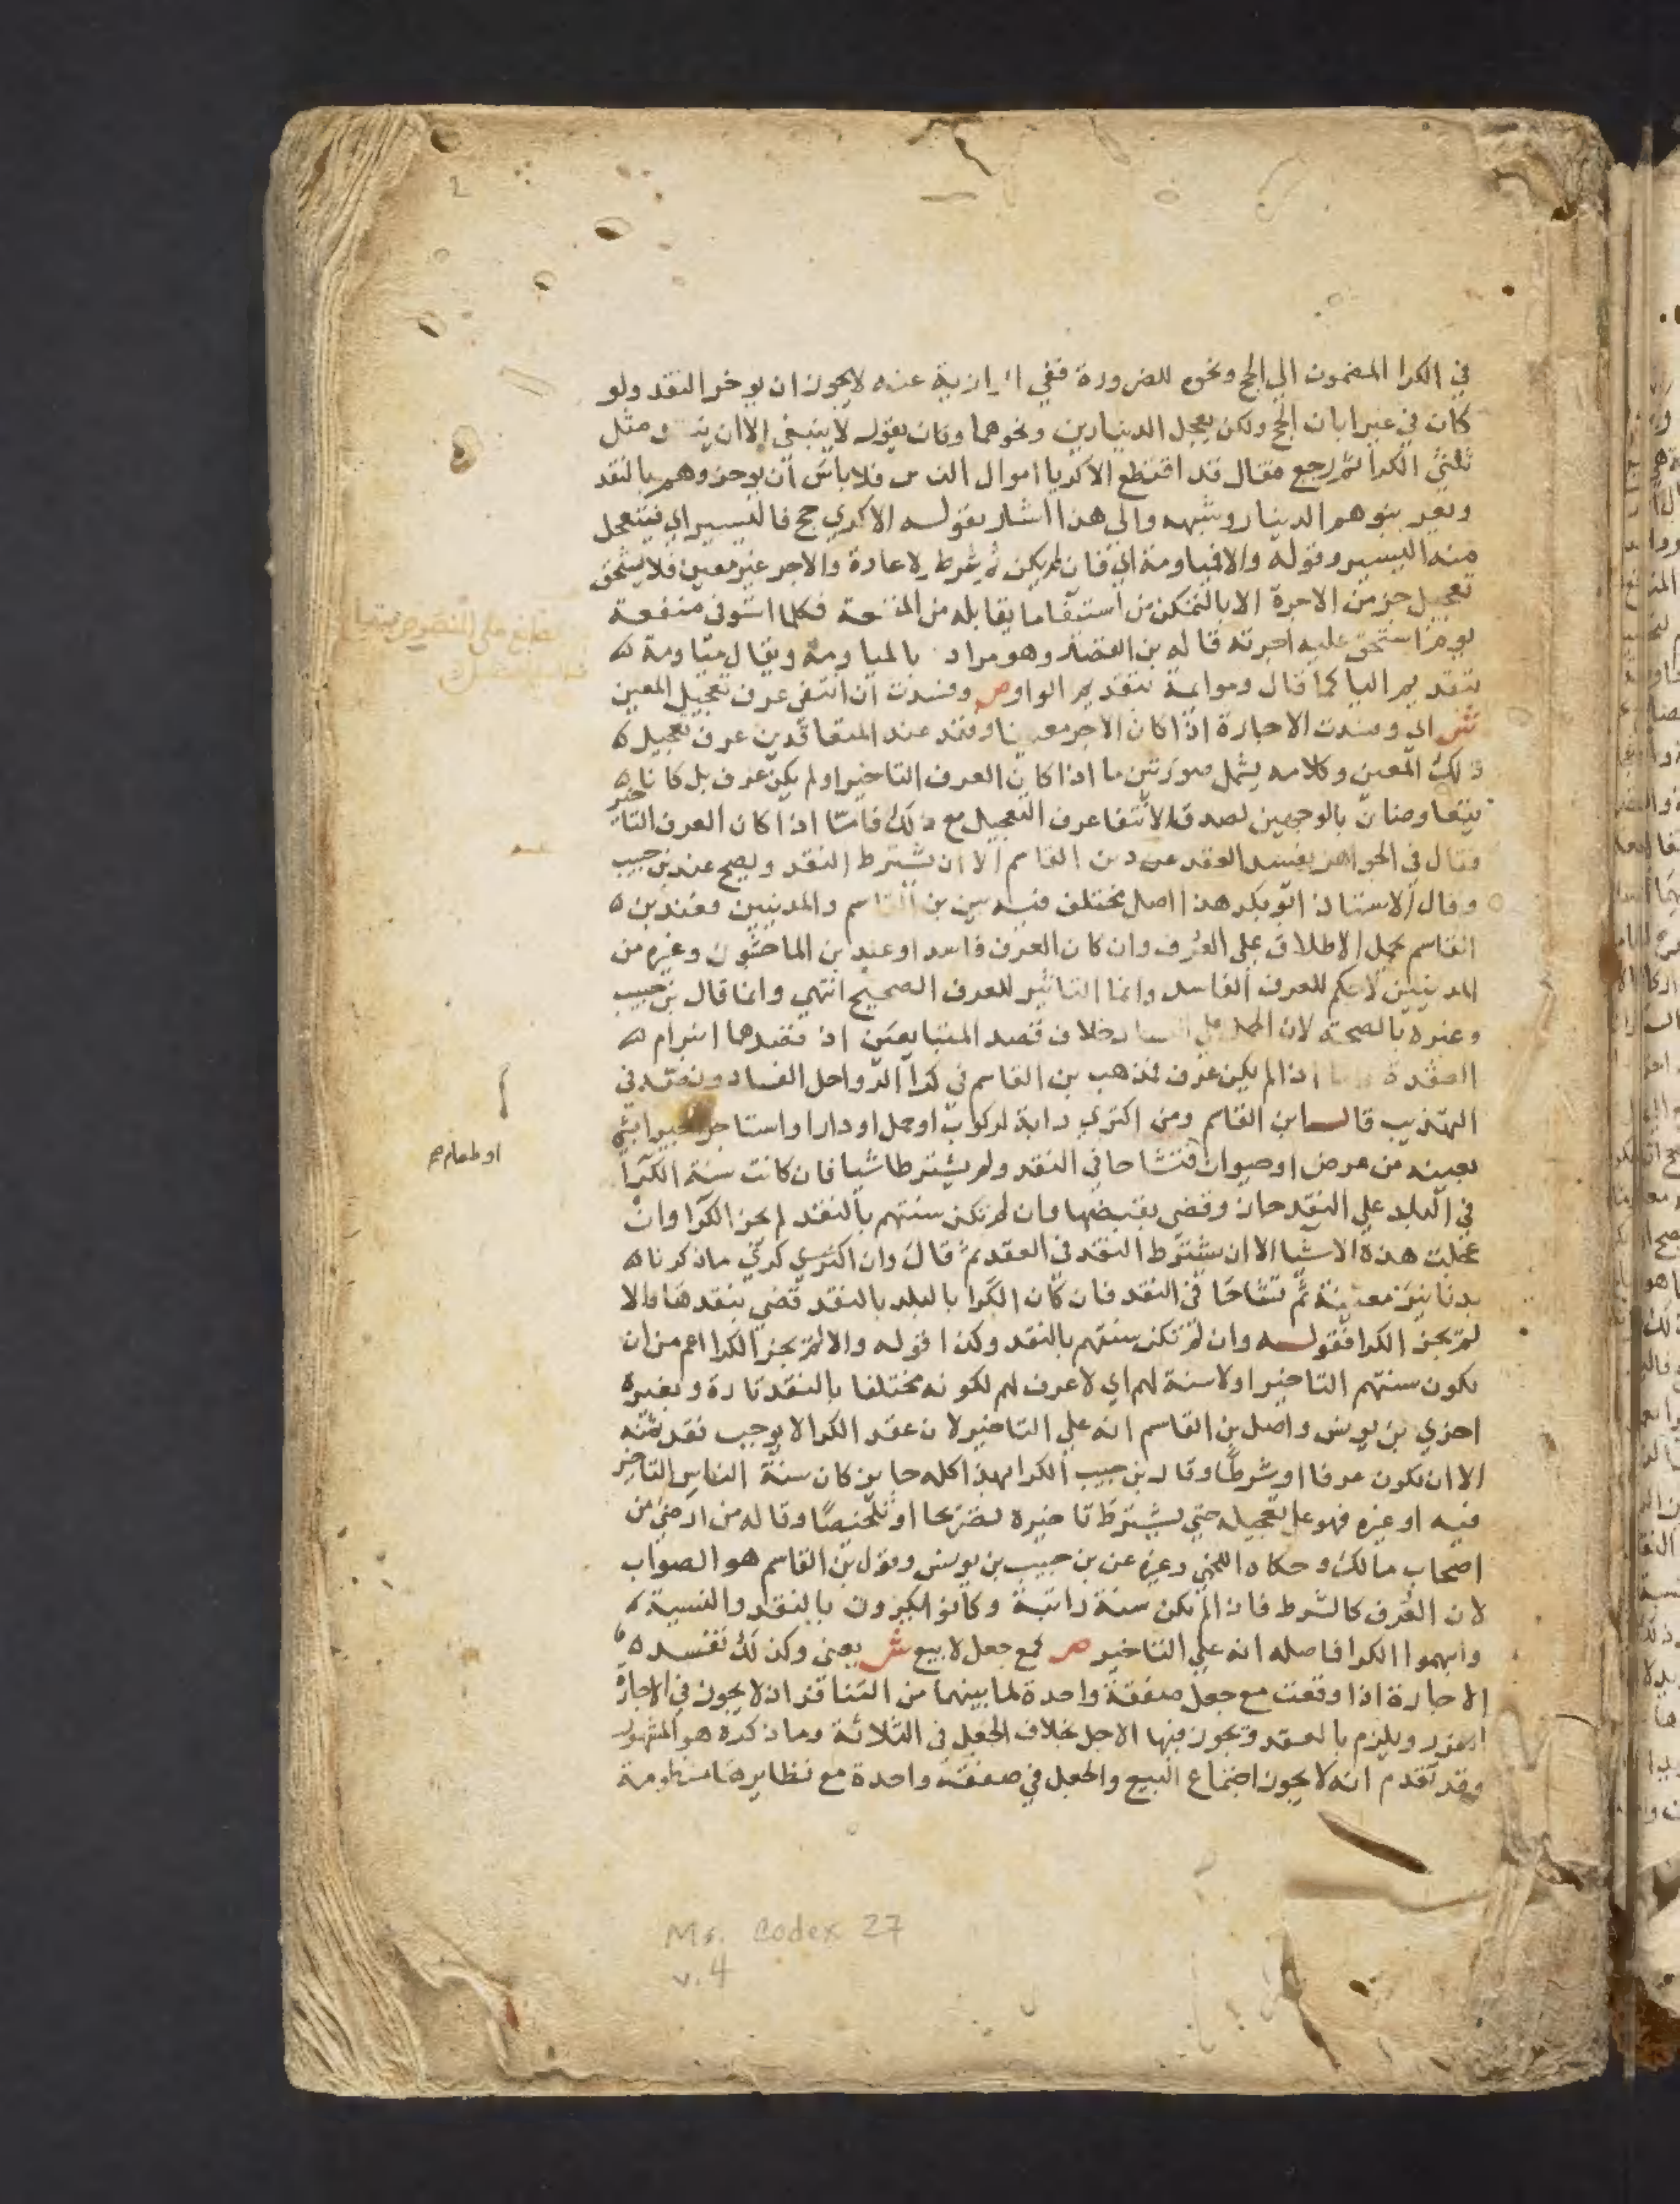 في الكرا المضمون الي الحج ونحوه للضرورة ففي عنه لا يجوز ان يوخر النقد ولو
كان في غير ابان الحج ولكن يعجل الدينارين ونحوهما وكان يقول لا ينبغي الا ان مثل
ثلثي الكرا ثم رجع فقال قد اقتطع الاكريا اموال الناس فلا باس ان يوخروهم بالنقد
ويعربنوهم الدينار وشبهه والي هذا اشار بقوله الاكري حج فاليسير اي فيتعجل
منه اليسير وقوله والا فمياومة اي فان لم يكن شرط ولا عادة والاجر غير معين فلا يستحق
تعجيل جزمن الاجرة الا بالتمكن من استيفا ما يقابله من المنفعة فكلما استوفي منفعة
يوم استحق عليه اجرته قاله بن القصار وهو مراد بالمياومة ويقال مياومة
بتقديم اليا كما قال وموايمة بتقديم الواو ص وفسدت ان انتفي عرف تعجيل المعين
ش اي وفسدت الاجارة اذا كان الاجر معينا وفقد عند المتعاقدين عرف تعجيل
ذلك المعين وكلامه يشمل صورتين ما اذا كان العرف التاخير اولم يكن عرف بل كانا
يتقاوضان بالوجهين لصدق الانتفا عرف التعجيل مع ذلك فامتا اذا كان العرف التاخير
فقال في الجواهر يفسد العقد عند بن القاسم الا ان يشترط النقد ويصح عند بن حبيب
وقال الاستاذ ابو بكر هذا اصل مختلف فيه بين بن القاسم والمدنيين فعند بن
القاسم يحمل الاطلاق علي العرف وان كان العرف فاسدا وعند بن الماجشون وغيره من
المدنيين لا حكم للعرف الفاسد وانما التاثير للعرف الصحيح انتهي وانما قال بن حبيب
وغيره بالصحة لان الحمل علي الفساد خلاف قصد المتبايعين اذ قصدهما ابرام
العقدة اذا لم يكن عرف فمذهب بن القاسم في كرا الرواحل الفساد ونصه في
التهذيب قال ابن القاسم ومن اكتري دابة لركوب او حمل او دارا او استاجر اجيرا بشي
بعينه من عرض او حيوان فتشاحا في النقد ولم يشترطا شيا فان كانت سنة الكرا
في البلد علي النقد جاز وقضي بقبضها وان لم تكن سنتهم بالنقد لم يجز الكرا وان
عجلت هذه الاشيا الا ان يشترط النقد في العقد ثم قال وان اكتري كري ما ذكرنا
بدنانير معينة ثم تشاحا في النقد فان كان الكرا بالبلد بالنقد قضي بنقدها والا
لم يجز الكرا فقوله وان لم تكن سنتهم بالنقد وكذا قوله والا لم يجز الكرا اعم من ان
تكون سنتهم التاخير اولا سنة لهم اي لا عرف لهم لكونه مختلفا بالنقد تارة وبغيره
اخري بن يونس واصل بن القاسم انه علي التاخير لان عقد الكرا لا يوجب نقد ثمنه
الا ان يكون عرفا او شرطا وقال بن حبيب الكرا بهذا كله جايز كان سنة الناس التاخير
فيه او غيره فهو علي تعجيله حتي يشترط تاخيره تصريحا او تلخيصا وقاله من ارضي من
اصحاب مالك وحكاه اللخمي وغيره عن بن حبيب بن يونس وقول بن القاسم هو الصواب
لان العرف كالشرط فاذا لم تكن سنة راتبة وكانوا يكرون بالنقد والنسية
وابهموا الكرا فاصله انه علي التاخير ص كمع جعل لا بيع ش يعني وكذلك تفسد
الاجارة اذا وقعت مع جعل صفقة واحدة لما بينهما من التنافر اذ لا يجوز في الاجارة
الغرر ويلزم بالعقد ويجوز فيها الاجل بخلاف الجعل في الثلاثة وما ذكره هو المشهور
وقد تقدم انه لا يجوز اجتماع البيع والجعل في صفقة واحدة مع نظايرها منظومة
او طعام صح
Ms. Codex 27
v. 4